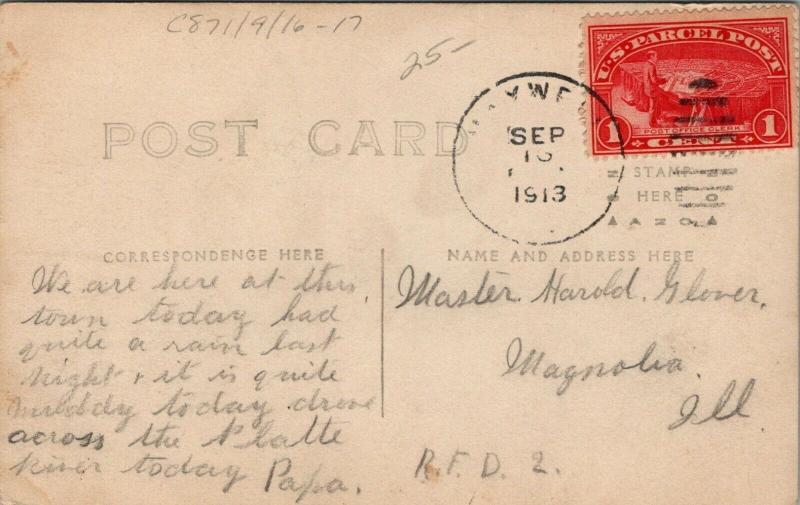 C871/9/16-17
25-
U.S. PARCEL POST
1 POST OFFICE CLERK 1
CENT
POST CARD
SEP
1913
STAMP
HERE
AZO
CORRESPONDENCE HERE
NAME AND ADDRESS HERE
We are here at this
town today had
quite a rain last
night + it is quite
muddy today drove
across the Platte
River today Papa.
Master. Harold. Glover.
Magnolia.
Ill.
R.F.D. 2.